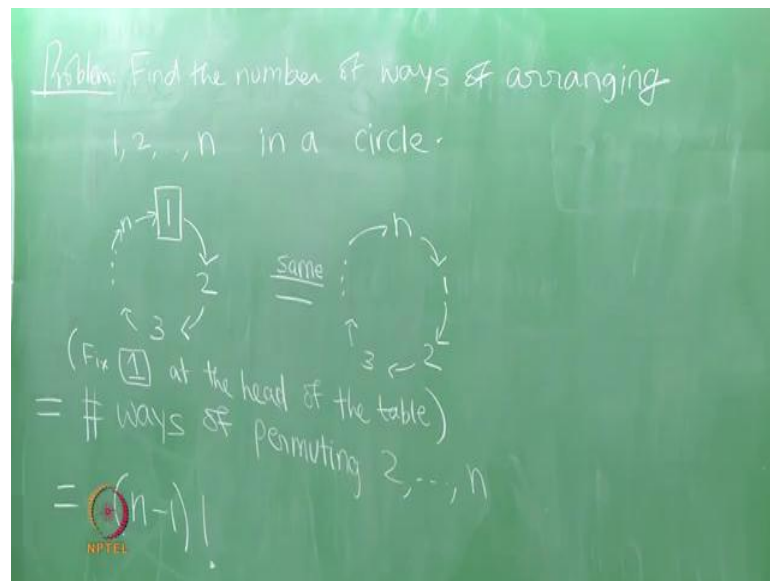 Problem: Find the number of ways of arranging
1, 2, .., n in a circle.
n → 1
2
3
same
n
1
2
3
(Fix 1 at the head of the table)
= # ways of permuting 2, ..., n
= (n-1)!
NPTEL